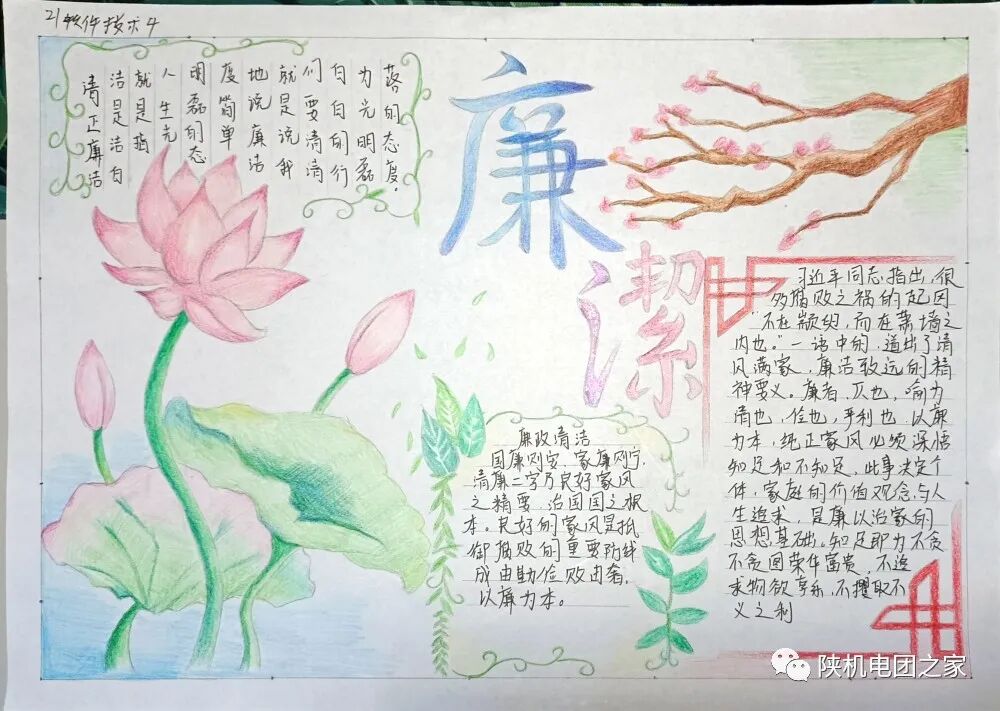 21软件技术4
清正廉洁
洁是洁白
就是指
人生光
明磊的态
度简单
地说廉洁
就是说我
们要清清
白白的行
为光明磊
落的态度。
廉
潔
习近平同志指出,很
多腐败之祸的起因
“不在颛臾,而在萧墙之
内也。”一语中的,道出了清
风满家,廉洁致远的精
神要义。廉者,仄也,喻为
清也,俭也,利也,以廉
为本,纯正家风必须深悟
知足和不知足,此事决定个
体,家庭的价值观念,与人
生追求,是廉以治家的
思想基础。知足即为不贪
不贪图荣华富贵,不追
求物欲享乐,不攫取不
义之利
廉政清洁
国廉则安,家廉则宁,
清廉二字乃良好家风
之精要,治国国之根
本。良好的家风是抵
御腐败的重要防线
成由勤俭败由奢,
以廉为本。
陕机电团之家